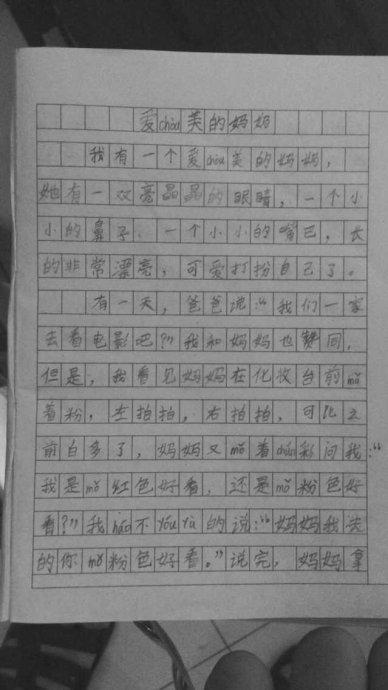 爱chǒu美的妈妈
我有一个爱chǒu美的妈妈，
她有一双亮晶晶的眼睛，一个小
小的鼻子，一个小小的嘴巴，长
的非常漂亮，可爱打扮自己了。
有一天，爸爸说：“我们一家
去看电影吧？”我和妈妈也赞同，
但是，我看见妈妈在化妆台前mǒ
着粉，左拍拍，右拍拍，可比之
前白多了，妈妈又mǒ着chún彩问我：“
我是mǒ红色好看，还是mǒ粉色好
看？”我háo不yóu yù的说：“妈妈我觉
的你mǒ粉色好看。”说完，妈妈拿